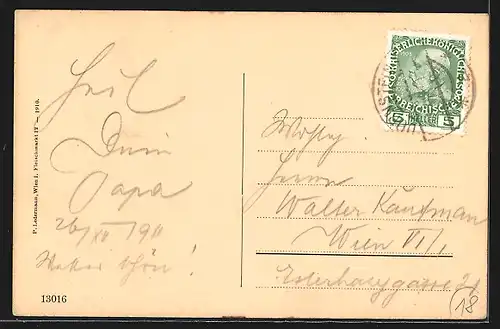 Heil
Dein
Papa
26/XII 1911
Wetter schön!
P. Ledermann, Wien I. Fleischmarkt 17 — 1910.
13016
KAISERLICHE KÖNIGLICHE
ÖSTERREICHISCHE
5 HELLER 5
Herrn
Walter Kaufman
Wien VI/1
Esterhazygasse
18